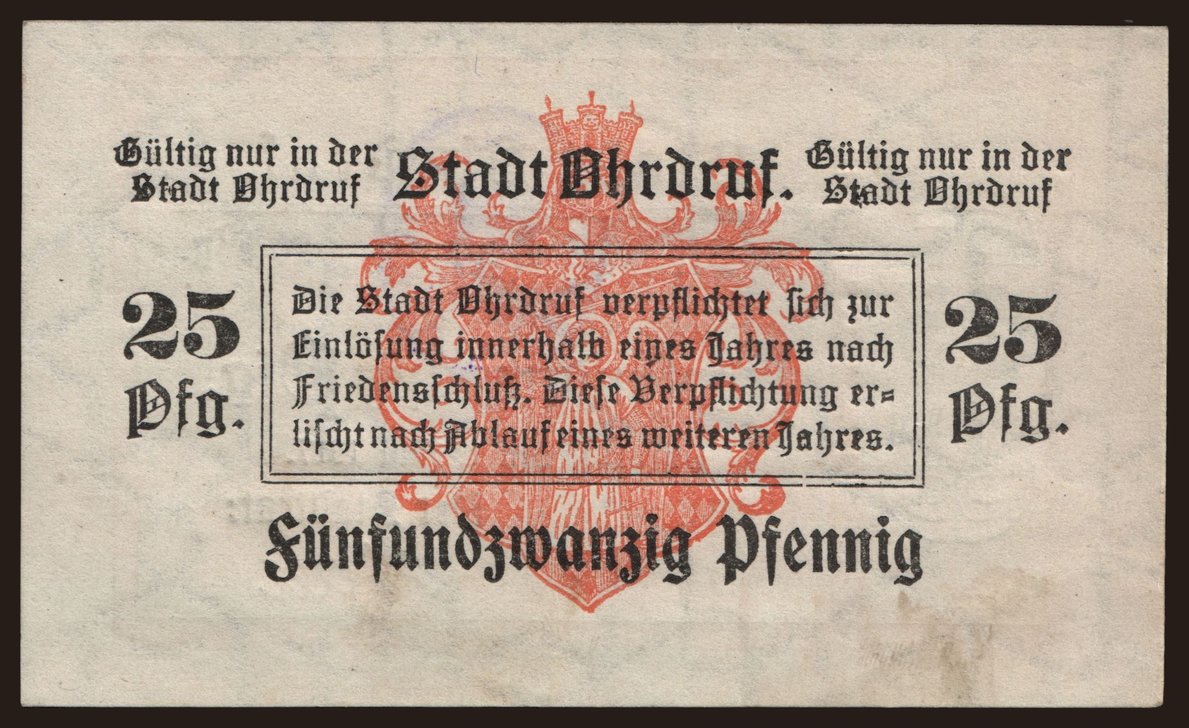 Gültig nur in der
Stadt Ohrdruf
Stadt Ohrdruf.
Gültig nur in der
Stadt Ohrdruf
25
Pfg.
Die Stadt Ohrdruf verpflichtet sich zur
Einlösung innerhalb eines Jahres nach
Friedensschluß. Diese Verpflichtung er=
lischt nach Ablauf eines weiteren Jahres.
25
Pfg.
Fünfundzwanzig Pfennig